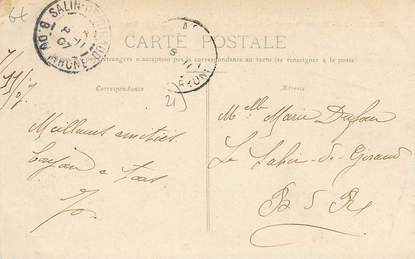 6€
SALIN-DE-GIRAUD
B. DU RHÔNE
CARTE POSTALE
étrangers n'acceptent pas la correspondance au recto (se renseigner à la poste
Correspondance
Adresse
7/11/07
21
Meilleures amitiés
à tous
Jo.
Melle Marie
Le Salin-de-Giraud
B d R